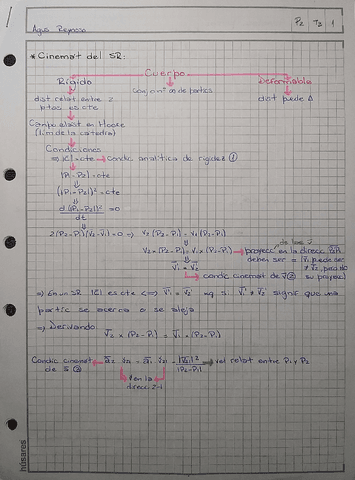 Agus Reynoso
P2 T2 1
* Cinemat del SR:
Cuerpo
Rígido
Conj continuo de partics
Deformable
dist relat entre 2
ptos es cte
dist puede Δ
Campo elast en Hooke
(lím de la catedra)
Condiciones
⇒ |C| = cte → Condic analítica de rigidez ①
|P1 - P2| = cte
(|P1 - P2|)² = cte
d(|P1 - P2|)²/dt = 0
2(P2 - P1)(V2 - V1) = 0 ⇒ V2 (P2 - P1) = V1 (P2 - P1)
V2 × (P2 - P1) = V1 × (P2 - P1) → proyecc en la direcc
de los v
deben ser =
V1 = V2
su proyecc)
condic cinemat de
⇒ En un SR |C| es cte ⟺ V1 = V2 si V1 ≠ V2 signif que una
partic se acerca o se aleja
⇒ Derivando
V2 × (P2 - P1) = V1 × (P2 - P1)
Condic cinemat
vel relat entre P1 y P2
de
en la
direcc 2-1
húsares